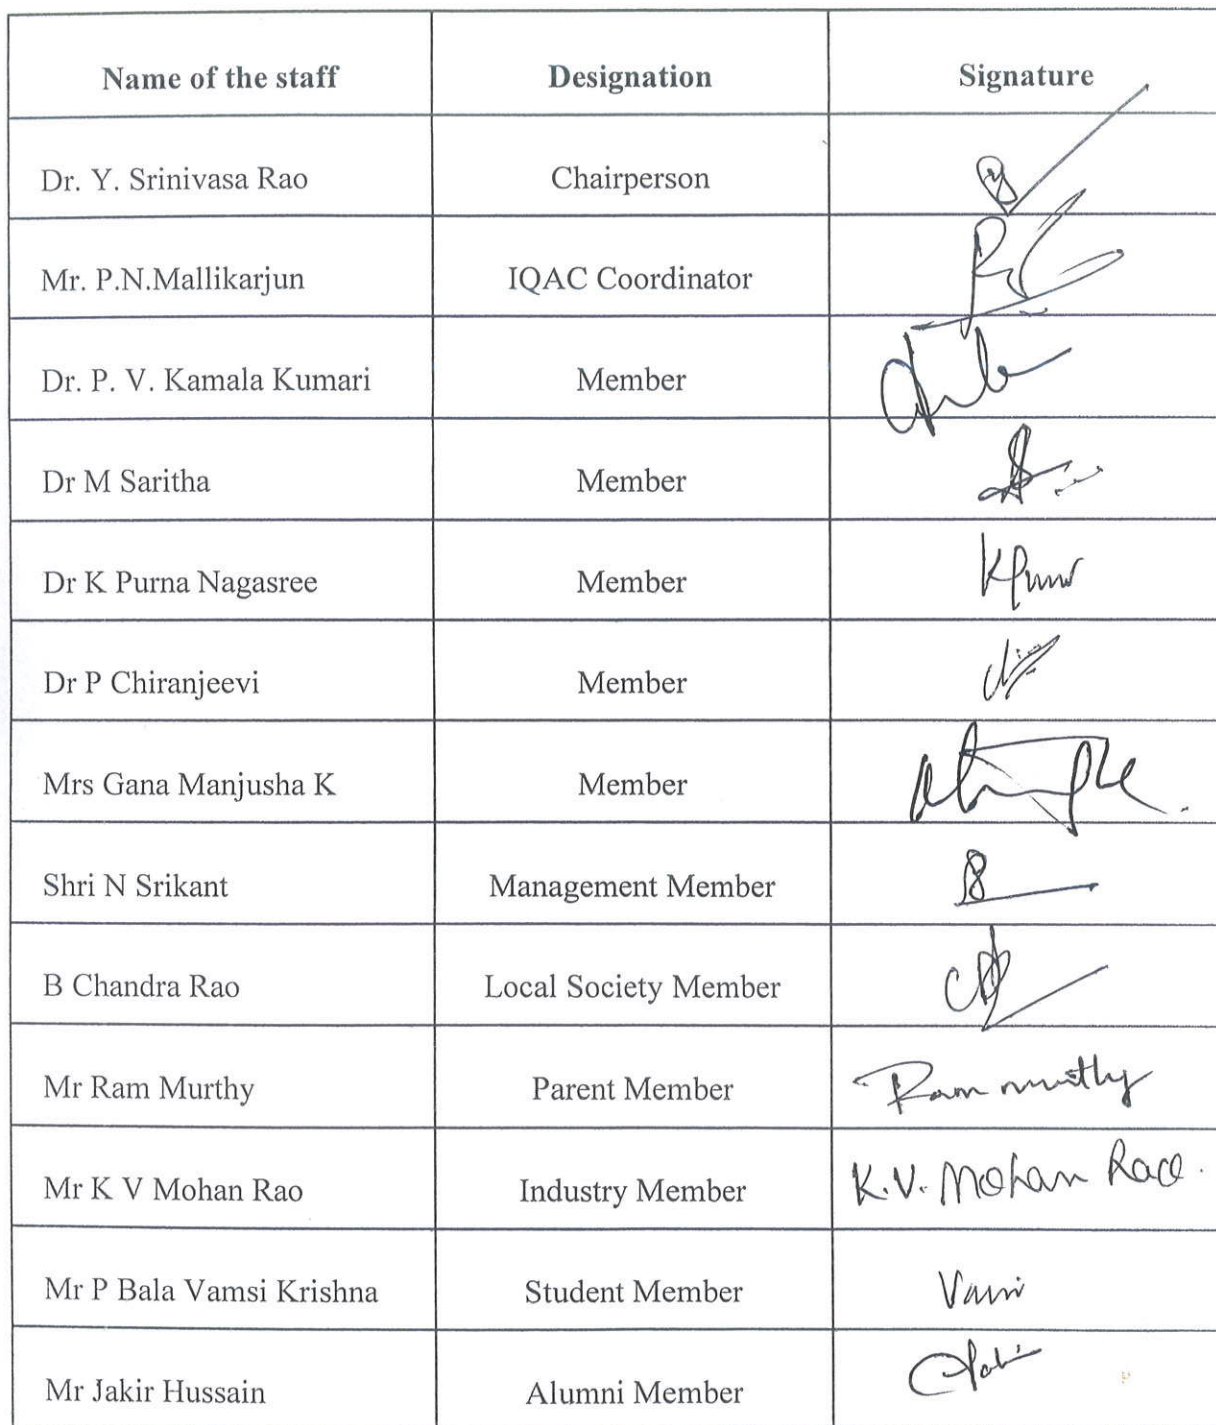 Name of the staff Designation Signature
Dr. Y. Srinivasa Rao Chairperson
Mr. P.N.Mallikarjun IQAC Coordinator
Dr. P. V. Kamala Kumari Member
Dr M Saritha Member
Dr K Purna Nagasree Member
Dr P Chiranjeevi Member
Mrs Gana Manjusha K Member
Shri N Srikant Management Member
B Chandra Rao Local Society Member
Mr Ram Murthy Parent Member Ram murthy
Mr K V Mohan Rao Industry Member K.V. Mohan Rao.
Mr P Bala Vamsi Krishna Student Member
Mr Jakir Hussain Alumni Member